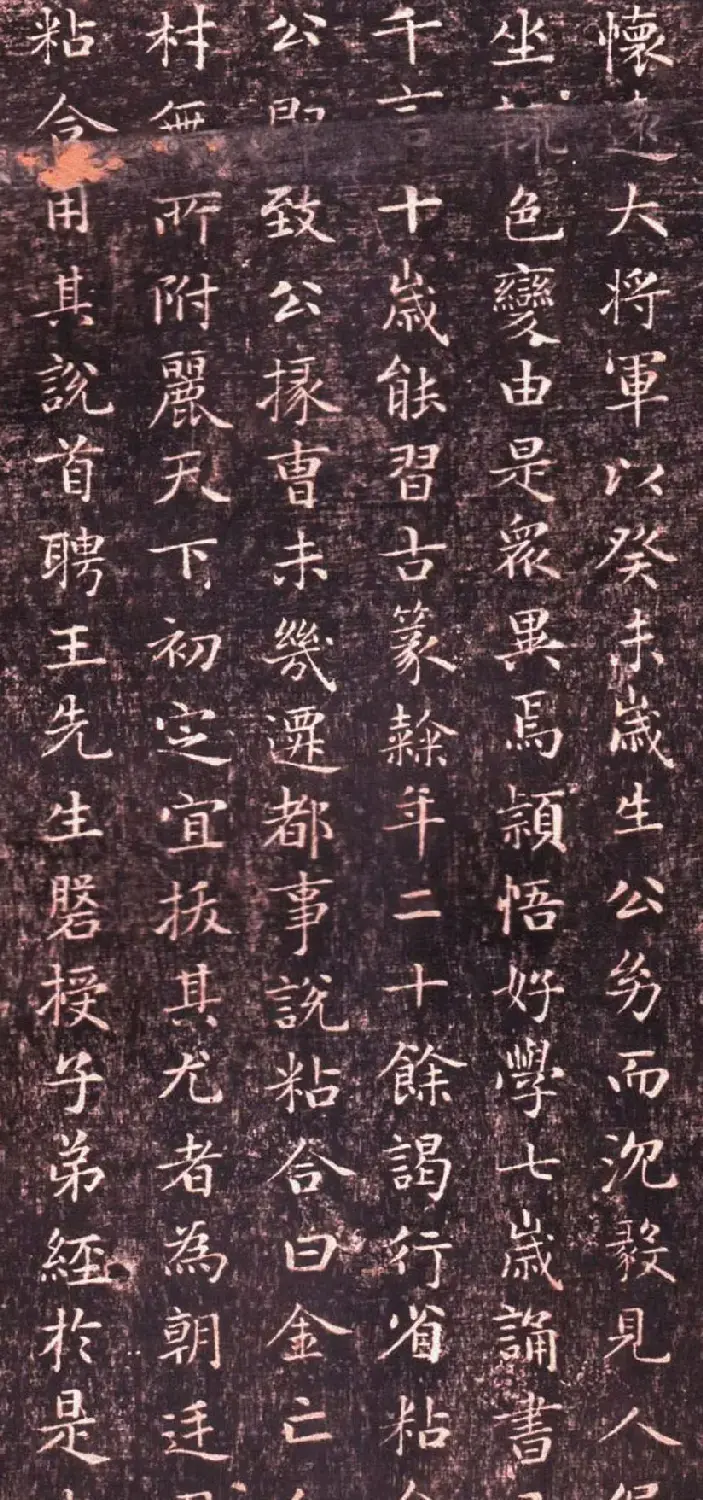 懷遠大将軍以癸未歳生公幼而沉毅見人
坐輒色變由是眾異焉頴悟好學七歳誦書
千言十歳能習古篆隸年二十餘謁行省粘
公即致公掾曹未幾遷都事說粘合曰金亡
材無所附麗天下初定宜拔其尤者為朝廷
粘合用其說首聘王先生磐授子弟經於是